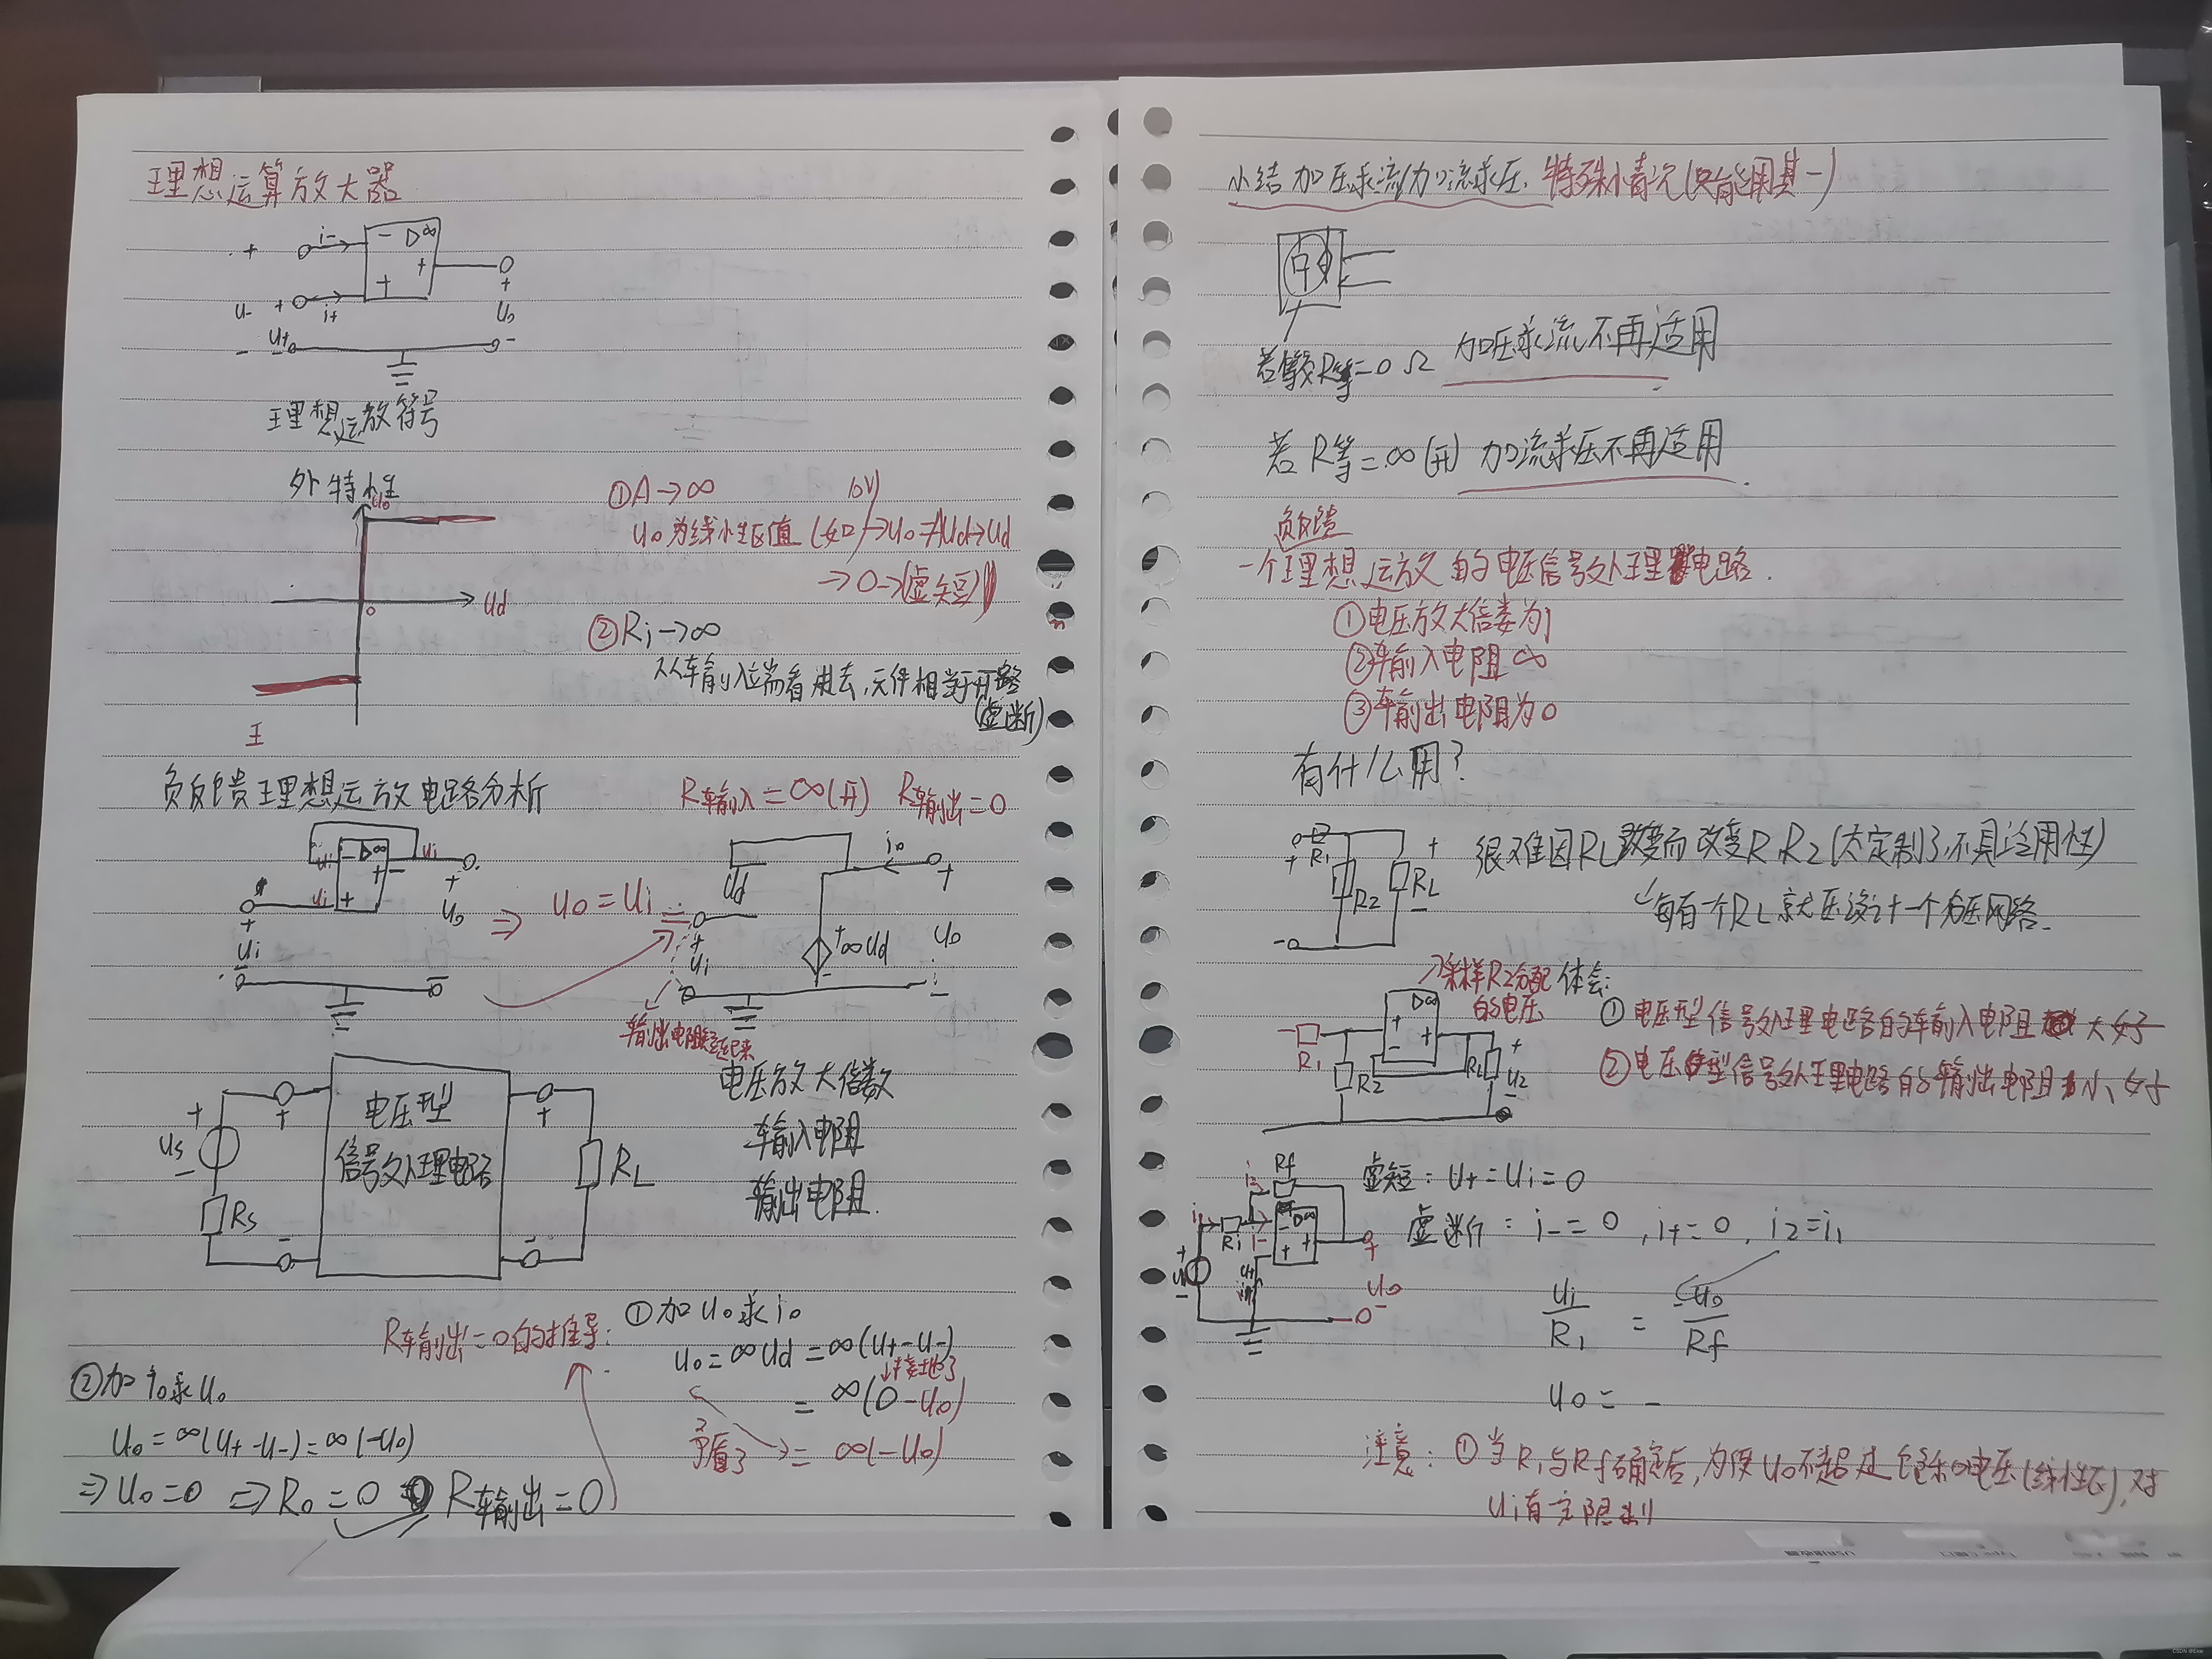 理想运算放大器
i-
- ▷∞
+
+
u-
+
i+
+
+
uo
u+
-
-
-
理想运放符号
外特性
uo
ud
0
①A→∞
10V
uo为线性区值(如→uo=Aud→ud
→0→(虚短))
②Ri→∞
从输入端看进去,元件相当于开路
(虚断)
负反馈理想运放电路分析
R输入=∞(开) R输出=0
ui
- ▷∞
ui
+
ui
+
uo
ui
⇒ uo=ui
ud
io
+
ui
+∞ud
uo
输出电阻短起来
us
Rs
电压型
信号处理电路
RL
电压放大倍数
输入电阻
输出电阻.
R输出=0的推导:
①加uo求io
uo=∞ud=∞(u+-u-)
↓接地了
=∞(0-uo)
矛盾了
=∞(-uo)
②加io求uo
uo=∞(u+-u-)=∞(-uo)
⇒uo=0 ⇒Ro=0 R输出=0
小结 加压求流/加流求压.特殊情况(只能用其一)
若R等=0Ω 加压求流不再适用
若R等=∞(开) 加流求压不再适用.
负反馈
一个理想运放的电压信号处理电路.
①电压放大倍数为1
②输入电阻∞
③输出电阻为0
有什么用?
R1
R2
RL
很难因RL改变而改变R1R2(太定制了,不具适用性)
每有一个RL就应设计一个分压网络.
采样R2分配
的电压
体会:
R1
R2
▷∞
RL
u2
①电压型信号处理电路的输入电阻大好
②电压型信号处理电路的输出电阻小好
Rf
i2
i1
R1
i-
- ▷∞
+
u+
ui
uo
虚短: u+=ui=0
虚断: i-=0, i+=0, i2=i1
ui/R1 = -uo/Rf
uo= -
注意: ①当R1与Rf确定后,为使uo不超过饱和电压(线性区),对
ui有一定限制
CSDN